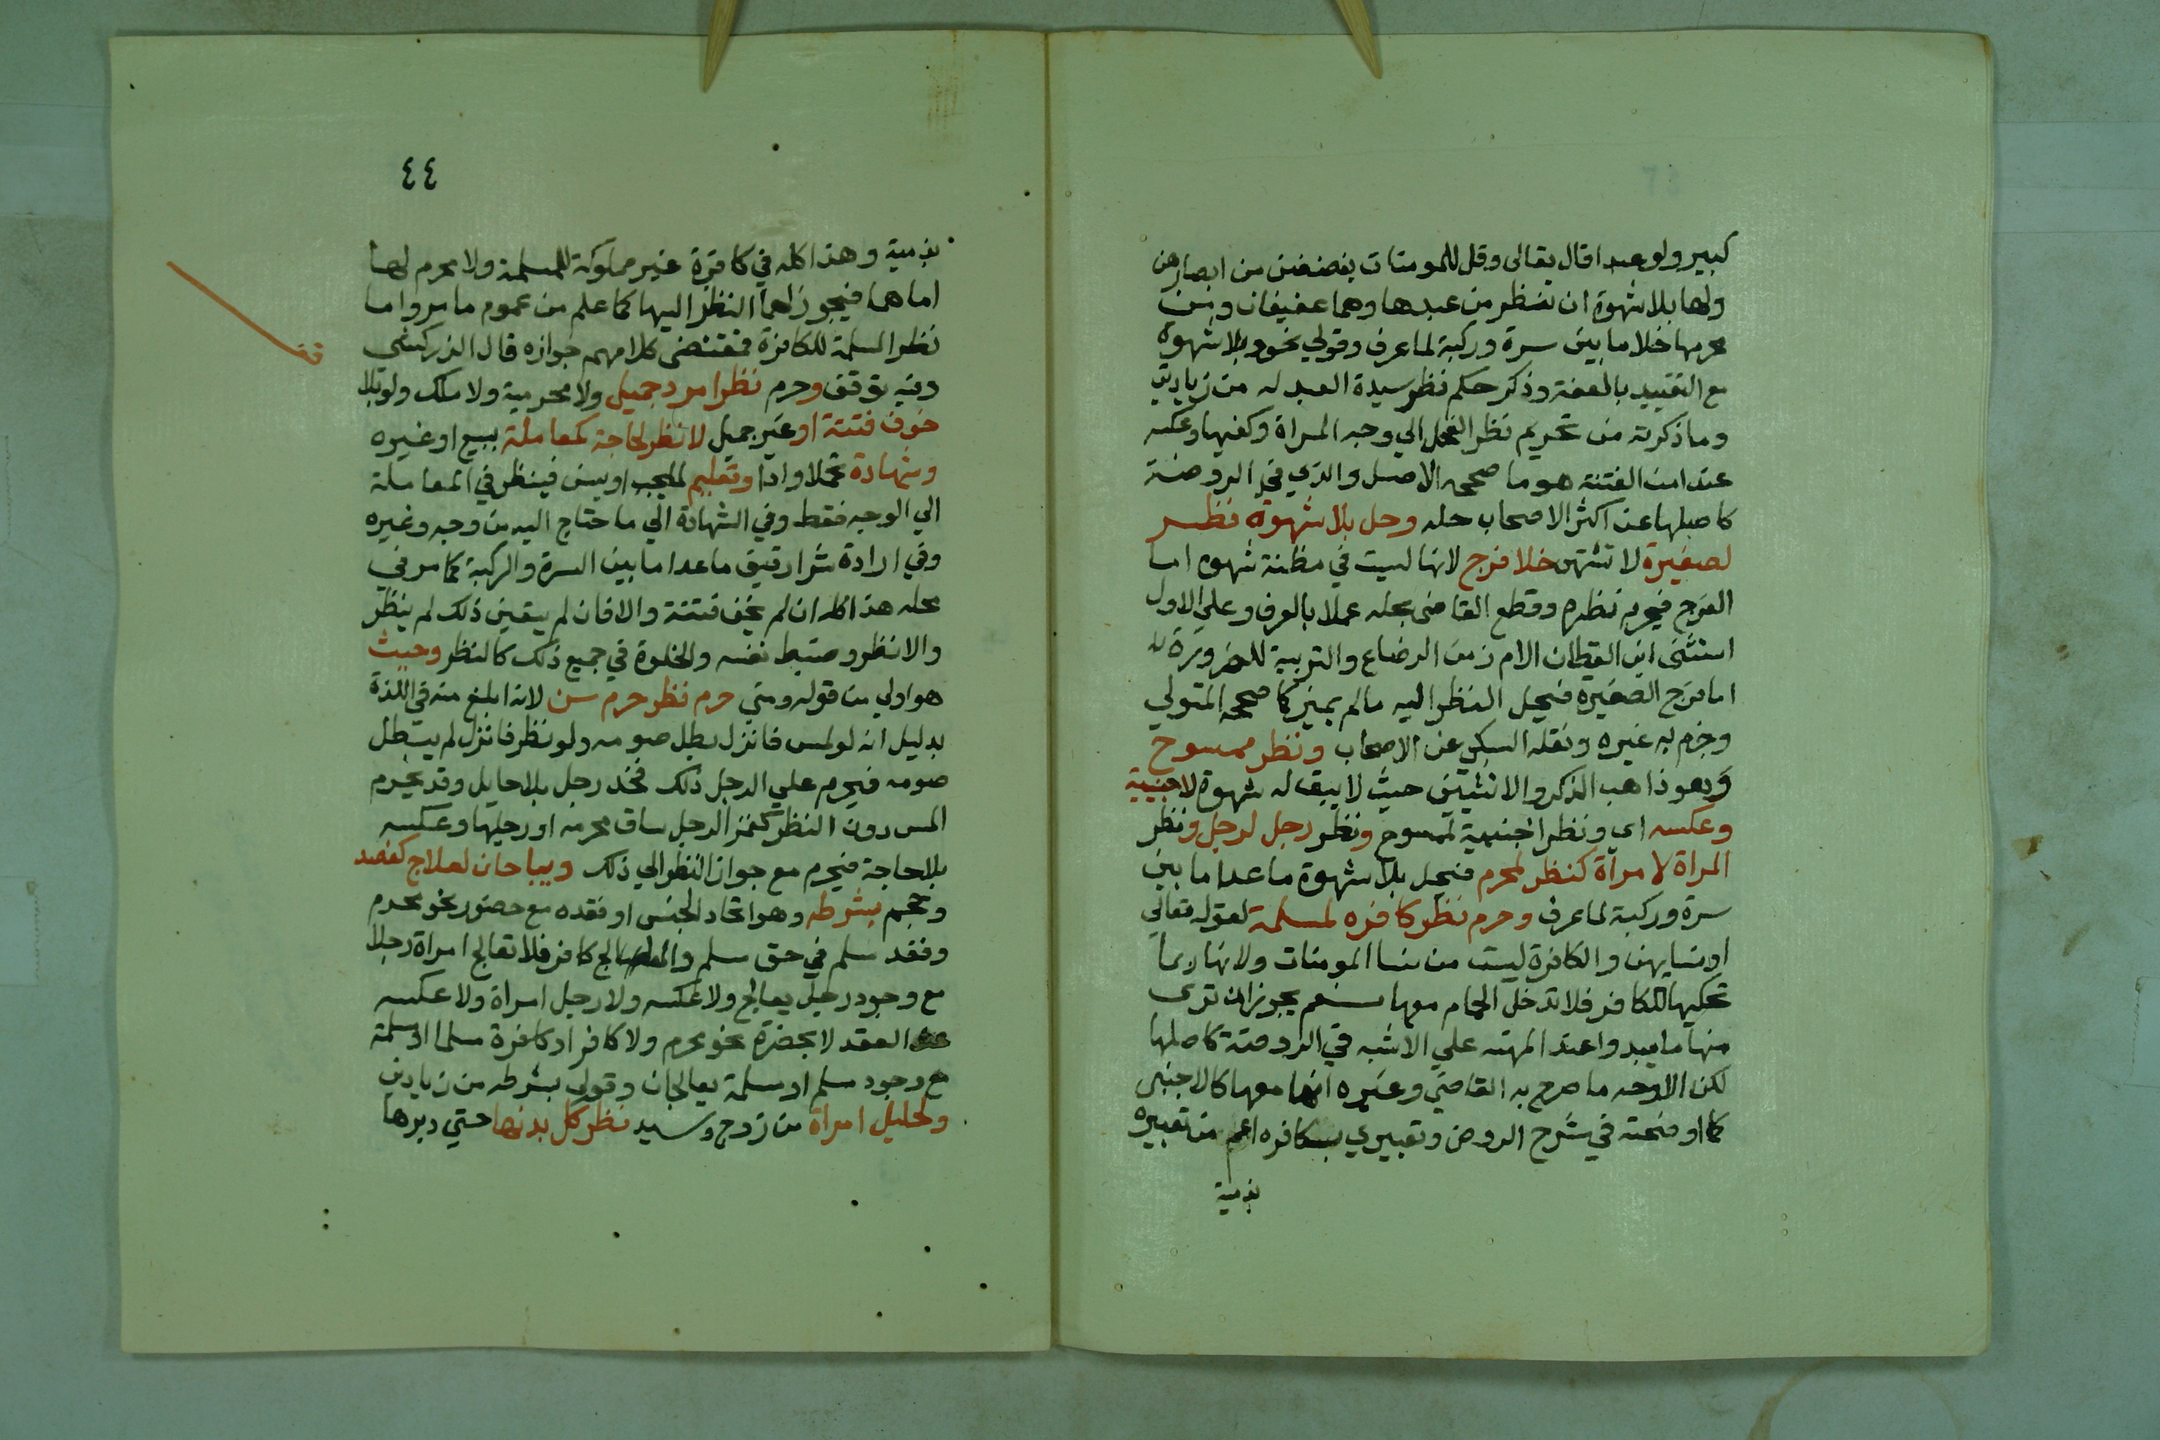 كبير ولو عبدا قال تعالى وقل للمومنات يغضضن من ابصارهن
ولها بلا شهوة ان تنظر من عبدها وهما عفيفان ومن
محرمها خلا ما بين سرة وركبة لما عرف وقولي نحو وبلا شهوة
مع التقييد بالعفة وذكر حكم نظر سيدة العبد له من زيادتي
وما ذكرته من تحريم نظر الفحل الي وجه المراة وكفيها وعكسه
عند امن الفتنة هو ما صححه الاصل والذي في الروضة
كاصلها عن اكثر الاصحاب حله وحل بلا شهوة نظر
لصغيرة لا تشتهى خلا فرج لانها ليست في مظنة شهوة اما
الفرج فيحرم نظره وقطع القاضي بحله عملا بالعرف وعلى الاول
استثنى ابن القطان الام زمن الرضاع والتربية للضرورة
اما فرج الصغير فيحل النظر اليه مالم يميز كما صححه المتولي
وجزم به غيره ونقله السبكي عن الاصحاب ونظر ممسوح
وهو ذاهب الذكر والانثيين حيث لا يبقى له شهوة لاجنبية
وعكسه اي ونظر اجنبية لممسوح ونظر رجل لرجل ونظر
المراة لامراة كنظر لمحرم فيحل بلا شهوة ما عدا ما بين
سرة وركبة لما عرف وحرم نظر كافرة لمسلمة لقوله تعالي
او نسايهن والكافرة ليست من نسا المومنات ولانها ربما
تحكيها للكافر فلا تدخل الحمام معها نعم يجوز ان ترى
منها ما يبدو عند المهنة علي الاشبه في الروضة كاصلها
لكن الاوجه ما صرح به القاضي وغيره انها معها كالاجنبي
كما اوضحته في شرح الروض وتعبيري بكافرة اعم من تعبيره
بذمية
٤٤
بذمية وهذا كله في كافرة غير مملوكة للمسلمة ولا محرم لها
اما هما فيجوز لهما النظر اليها كما علم من عموم ما مر واما
نظر المسلمة للكافرة فمقتضى كلامهم جوازه قال الزركشي
وفيه توقف وحرم نظر امرد جميل ولا محرمية ولا ملك ولو بلا
خوف فتنة او غير جميل لا نظر لحاجة كمعاملة ببيع او غيره
وشهادة تحملا وادا وتعليم لما يجب او يسن فينظر في المعاملة
الي الوجه فقط وفي الشهادة الي ما يحتاج اليه من وجه وغيره
وفي ارادة شرا رقيق ما عدا ما بين السرة والركبة كما مر في
محله هذا كله ان لم يخف فتنة والا فان لم يتعين ذلك لم ينظر
والا نظر وضبط نفسه والخلوة في جميع ذلك كالنظر وحيث
هو اولي من قوله ومتي حرم نظر حرم مس لانه ابلغ منه في اللذة
بدليل انه لو لمس فانزل بطل صومه ولو نظر فانزل لم يبطل
صومه فيحرم علي الرجل دلك فخذ رجل بلا حايل وقد يحرم
المس دون النظر كغمز الرجل ساق محرمه او رجليها وعكسه
بلا حاجة فيحرم مع جواز النظر الي ذلك ويباحان لعلاج كفصد
وحجم بشرطه وهو اتحاد الجنس او فقده مع حضور نحو محرم
وفقد مسلم في حق مسلم والمعالج كافر فلا تعالج امراة رجلا
مع وجود رجل يعالج ولا عكسه ولا رجل امراة ولا عكسه
عند العقد لا بحضرة نحو محرم ولا كافر او كافرة مسلما او مسلمة
مع وجود مسلم او مسلمة يعالجان وقولي بشرطه من زيادتي
ولحليل امراة من زوج وسيد نظر كل بدنها حتي دبرها
قف